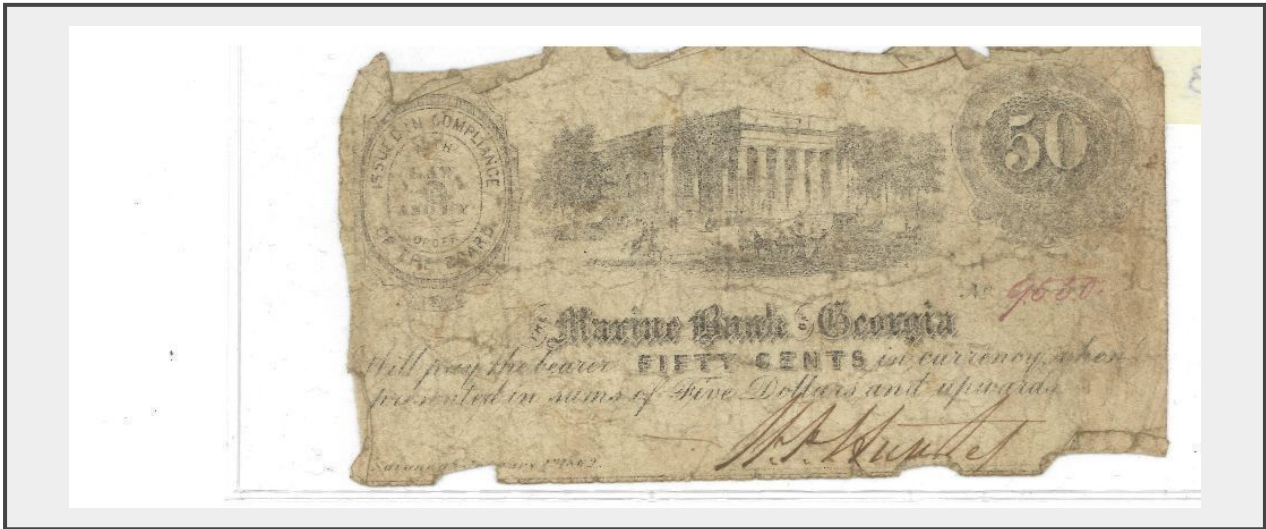 ISSUED IN COMPLIANCE
WITH
LAWS
AND BY
ORDER
OF THE BOARD
50
No 9550.
THE Marine Bank OF Georgia
Will pay the bearer FIFTY CENTS in currency, when
presented in sums of Five Dollars and upwards
W. P. Hunter
Savannah 1862.